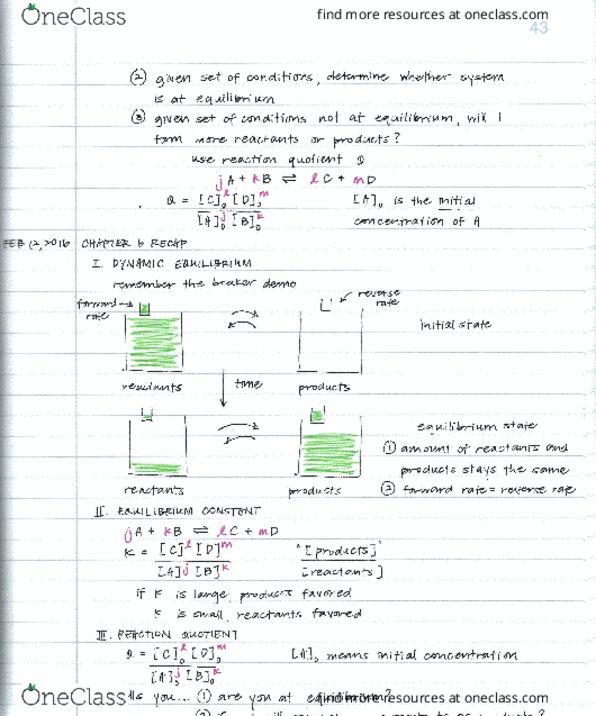 OneClass
find more resources at oneclass.com
43
② given set of conditions, determine whether system
is at equilibrium
③ given set of conditions not at equilibrium, will I
form more reactants or products?
use reaction quotient Q
jA + kB ⇌ lC + mD
Q = [C]₀ˡ [D]₀ᵐ / [A]₀ʲ [B]₀ᵏ
[A]₀ is the initial
concentration of A
FEB 12, 2016 CHAPTER 6 RECAP
I. DYNAMIC EQUILIBRIUM
remember the beaker demo
forward → rate
reverse rate
initial state
reactants
time
products
equilibrium state
① amount of reactants and
products stays the same
reactants
products
② forward rate = reverse rate
II. EQUILIBRIUM CONSTANT
jA + kB ⇌ lC + mD
K = [C]ˡ [D]ᵐ / [A]ʲ [B]ᵏ
"[products]" / [reactants]
if K is large, products favored
K is small, reactants favored
III. REACTION QUOTIENT
Q = [C]₀ˡ [D]₀ᵐ / [A]₀ʲ [B]₀ᵏ
[A]₀ means initial concentration
you... ① are you at equilibrium?
OneClass
find more resources at oneclass.com